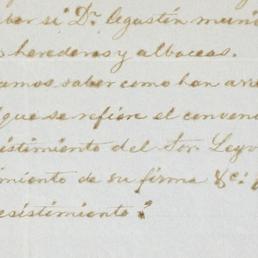 ber si Dn. Agustin
herederos y albaceas.
amos saber como han
que se refiere el conven
istimiento del Sor. Leyv
imiento de su firma &c:
esistimiento?